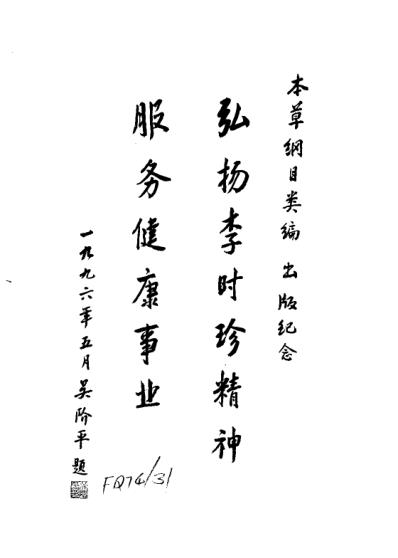 本草纲目类编 出版纪念
弘扬李时珍精神
服务健康事业
一九九六年五月 吴阶平 题
FQ74/31